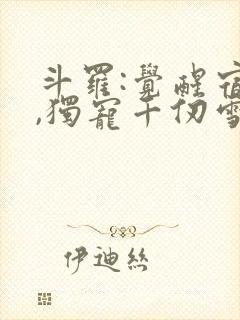 斗羅:覺醒宿
,獨寵千仞雪
伊迪絲